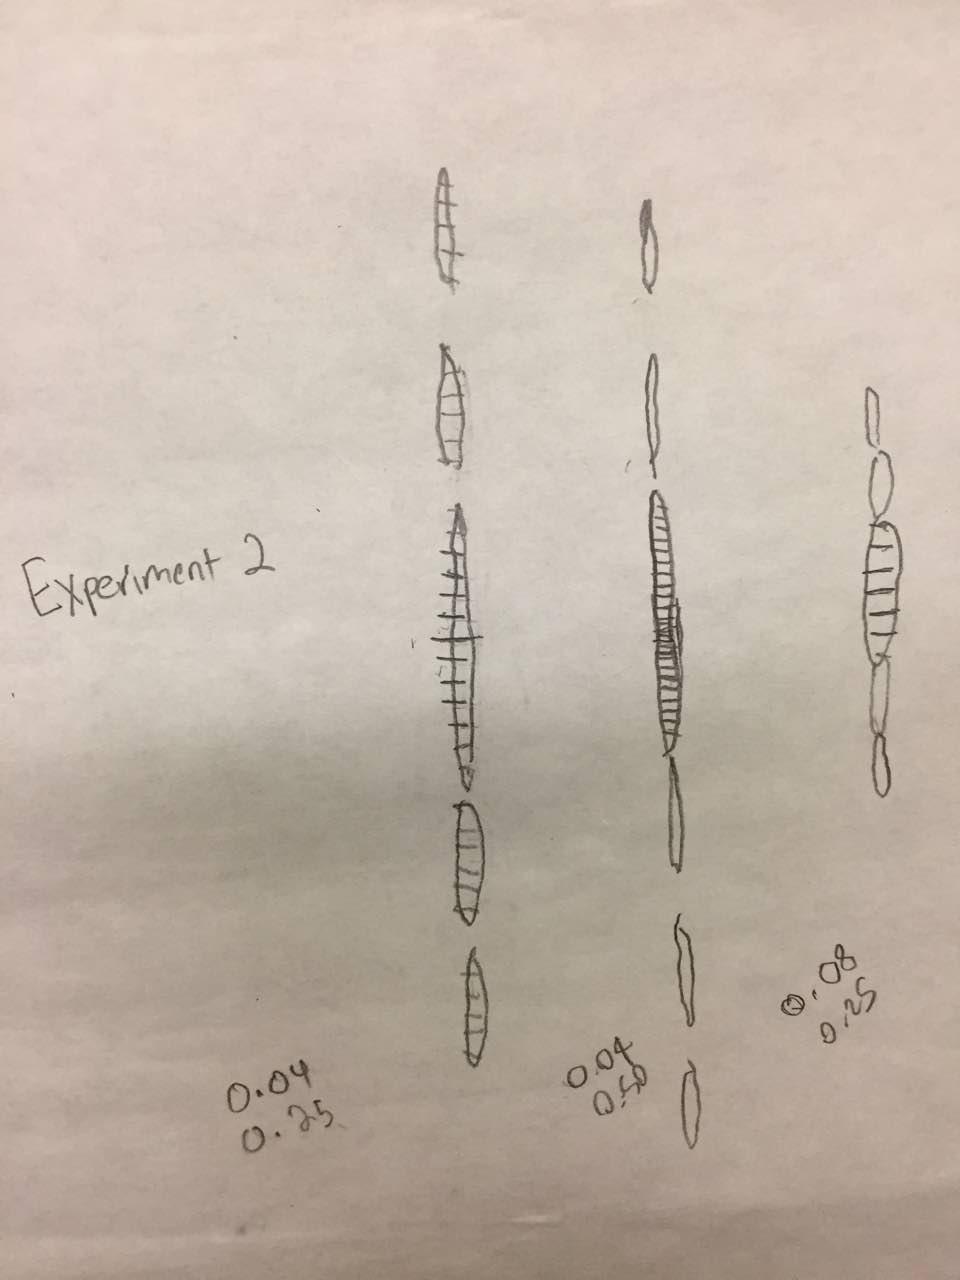 Experiment 2
0.04
0.25
0.04
0.50
0.08
0.25